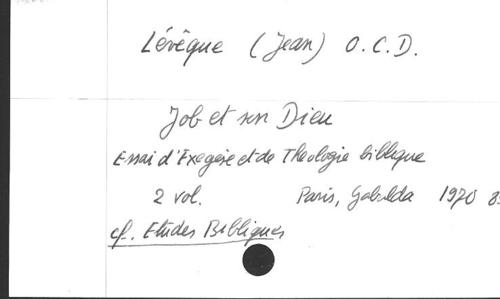 Lévêque (Jean) O.C.D.
Job et son Dieu
Essai d'Exégèse et de Théologie biblique
2 vol. Paris, Gabalda 1970
cf. Etudes Bibliques